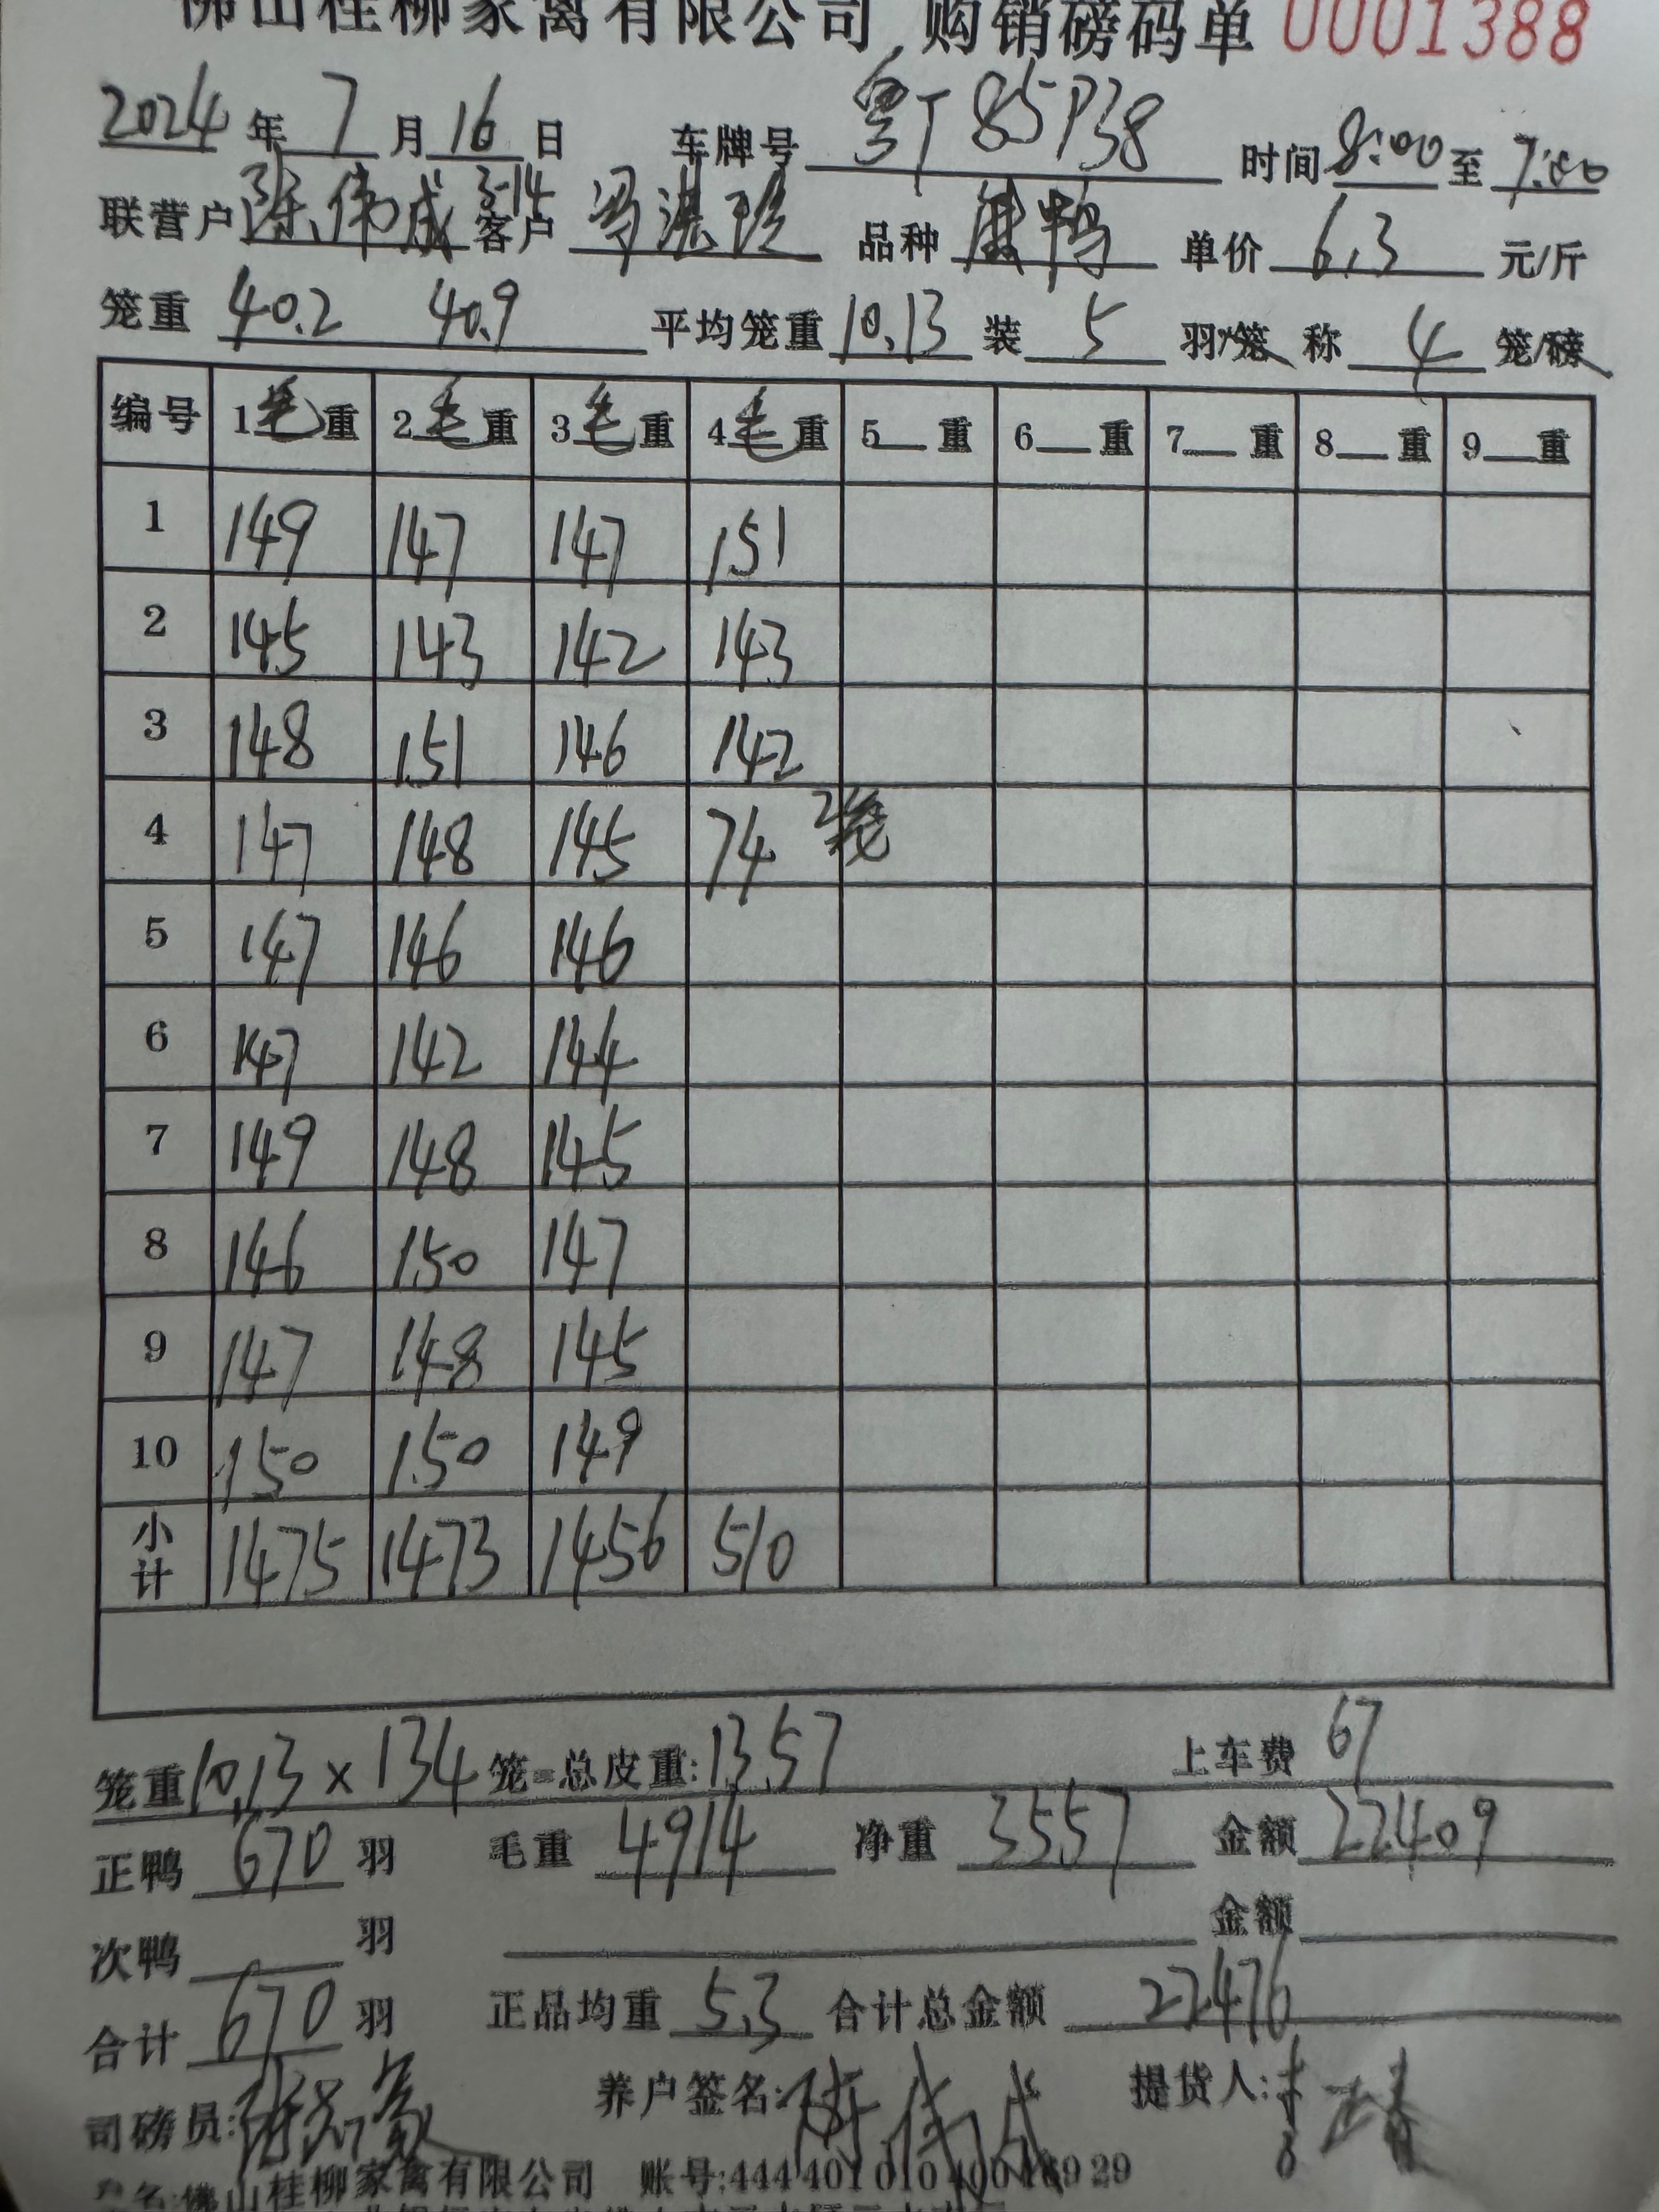 佛山桂柳家禽有限公司 购销磅码单 0001388
2024 年 7 月 16 日 车牌号 粤T 85P38 时间 8:00 至 9:00
3-14
联营户 陈伟成 客户 品种 鸭 单价 6.3 元/斤
笼重 40.2 40.9 平均笼重 10.13 装 5 羽/笼 称 4 笼/磅
编号 1毛重 2毛重 3毛重 4毛重 5 重 6 重 7 重 8 重 9 重
1 149 147 147 151
2 145 143 142 143
3 148 151 146 142
4 147 148 145 74 2笼
5 147 146 146
6 147 142 144
7 149 148 145
8 146 150 147
9 147 148 145
10 150 150 149
小计 1475 1473 1456 510
笼重 10.13 x 134 笼=总皮重: 1357 上车费 67
正鸭 670 羽 毛重 4914 净重 3557 金额 22409
次鸭 羽 金额
合计 670 羽 正品均重 5.3 合计总金额 22476
司磅员: 养户签名: 陈伟成 提货人:
佛山桂柳家禽有限公司 账号:444401010400